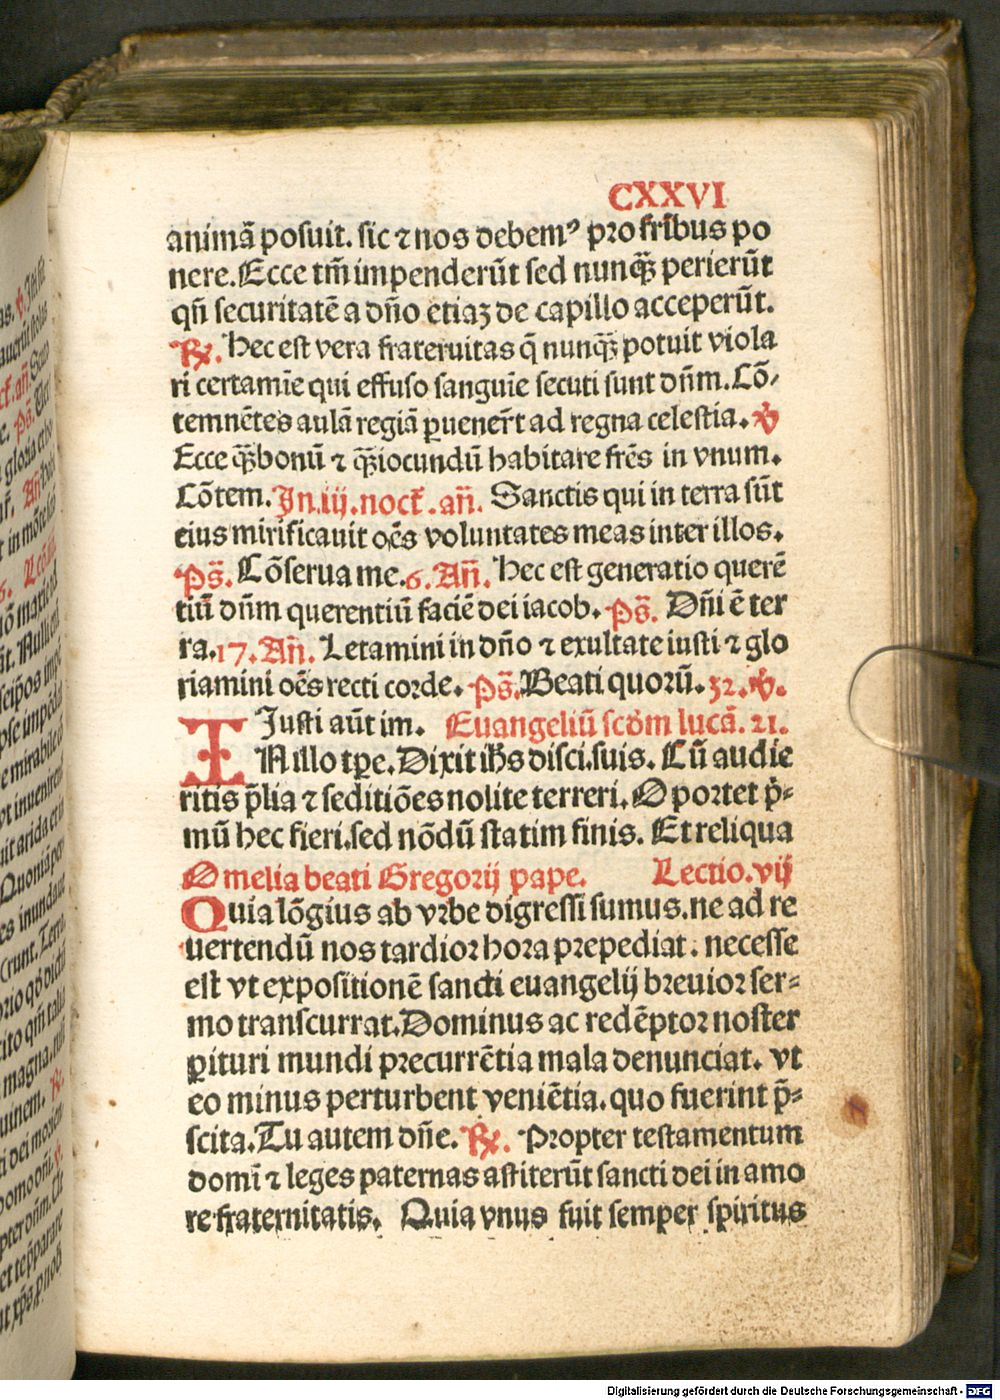 CXXVI
animã posuit. sic ⁊ nos debemꝰ pro frĩbus po
nere. Ecce tm̃ impenderũt sed nunq̃ʒ perierũt
qñ securitatẽ a dño etiaʒ de capillo acceperũt.
℞. Hec est vera fraternitas q̃ nunq̃ʒ potuit viola
ri certamĩe qui effuso sanguĩe secuti sunt dñm. Cõ/
temnẽtes aulã regiã ꝑuener̃t ad regna celestia. ℣
Ecce q̃ʒ bonũ ⁊ q̃ʒ iocundũ habitare frẽs in vnum.
Cõtem. In .iij. nocť. añ. Sanctis qui in terra sũt
eius mirificauit oẽs voluntates meas inter illos.
Ps̃. Cõserua me. 6. Añ. Hec est generatio querẽ
tiũ dñm querentiũ faciẽ dei iacob. Ps̃. Dñi ẽ ter
ra. 17. Añ. Letamini in dño ⁊ exultate iusti ⁊ glo
riamini oẽs recti corde. Ps̃. Beati quorũ. 32. ℣.
Iusti aũt im. Euangeliũ scd̃m lucã. 21.
IN illo tꝑe. Dixit ih̃s disci. suis. Cũ audie
ritis p̃lia ⁊ seditiões nolite terreri. Oportet p̃-
mũ hec fieri. sed nõdũ statim finis. Et reliqua
Omelia beati Gregorij pape. Lectio. vij
Quia lõgius ab vrbe digressi sumus. ne ad re
uertendũ nos tardior hora prepediat. necesse
est vt expositionẽ sancti euangelij breuior ser-
mo transcurrat. Dominus ac redẽptor noster
ꝑituri mundi precurrẽtia mala denunciat. vt
eo minus perturbent veniẽtia. quo fuerint p̃-
scita. Tu autem dñe. ℞. Propter testamentum
domĩ ⁊ leges paternas astiterũt sancti dei in amo
re fraternitatis. Quia vnus fuit semper spiritus
Digitalisierung gefördert durch die Deutsche Forschungsgemeinschaft - DFG